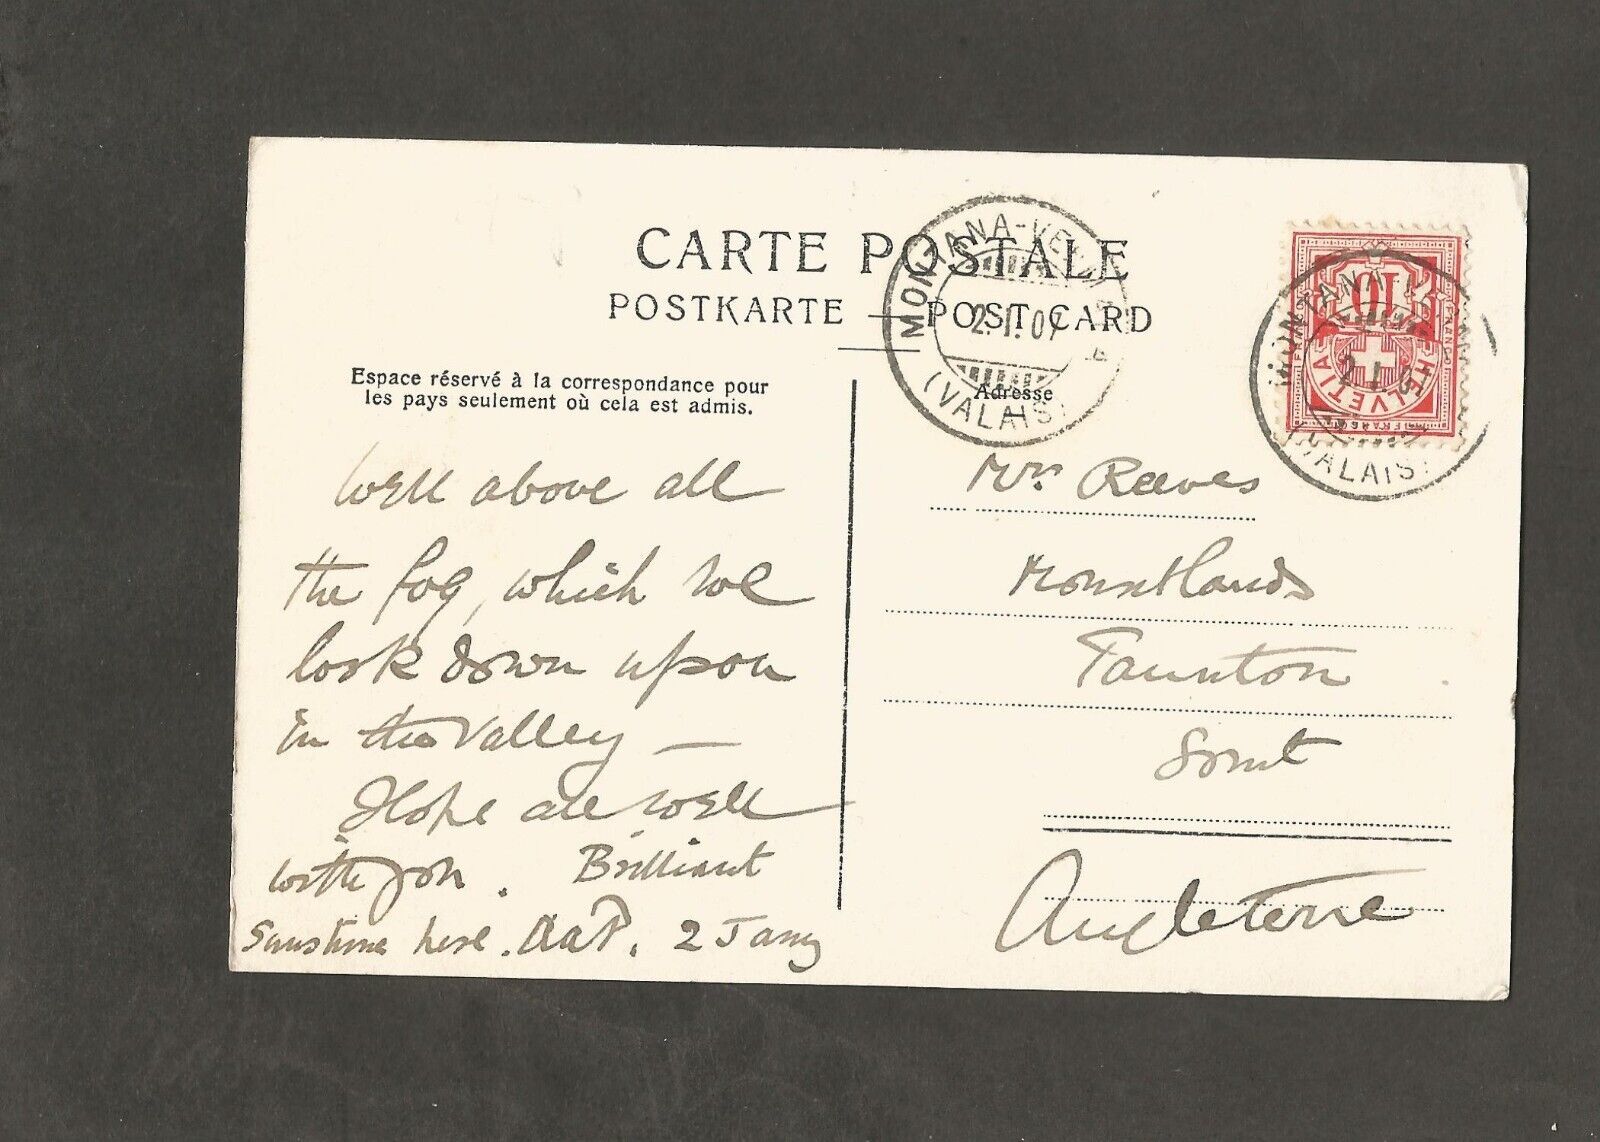 CARTE POSTALE
POSTKARTE — POST CARD
Espace réservé à la correspondance pour
les pays seulement où cela est admis.
Adresse
MONTANA-VERMALA
2.I.07
(VALAIS)
HELVETIA
10
FRANCO
MONTANA-VERMALA
2.I.07
(VALAIS)
Well above all
the fog, which we
look down upon
in the valley —
Hope all well
with you. Brilliant
Sunshine here. 2 Jany
Mrs Reeves
Mountlands
Taunton
Somst
Angleterre